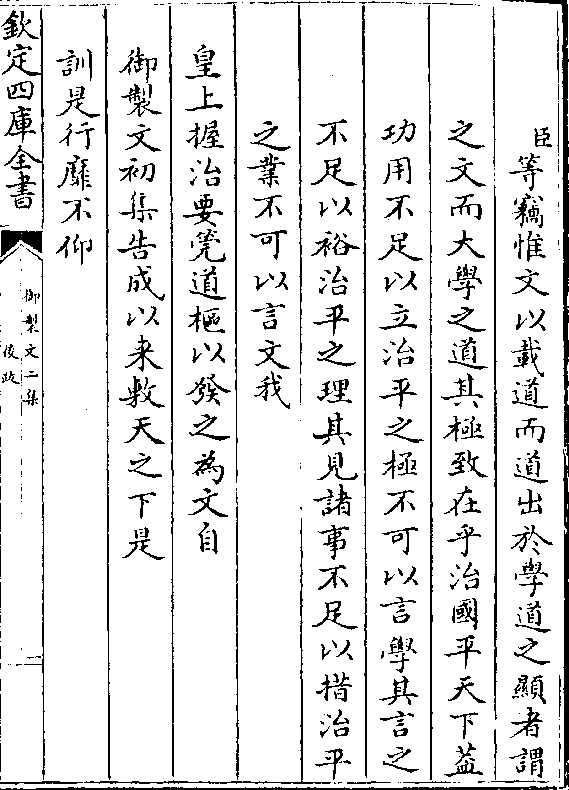 臣等竊惟文以載道而道出於學道之顯者謂
之文而大學之道其極致在乎治國平天下葢
功用不足以立治平之極不可以言學其言之
不足以裕治平之理其見諸事不足以措治平
之業不可以言文我
皇上握治要筦道樞以發之為文自
御製文初集告成以来敷天之下是
訓是行靡不仰
欽定四庫全書
御製文二集
後跋
二